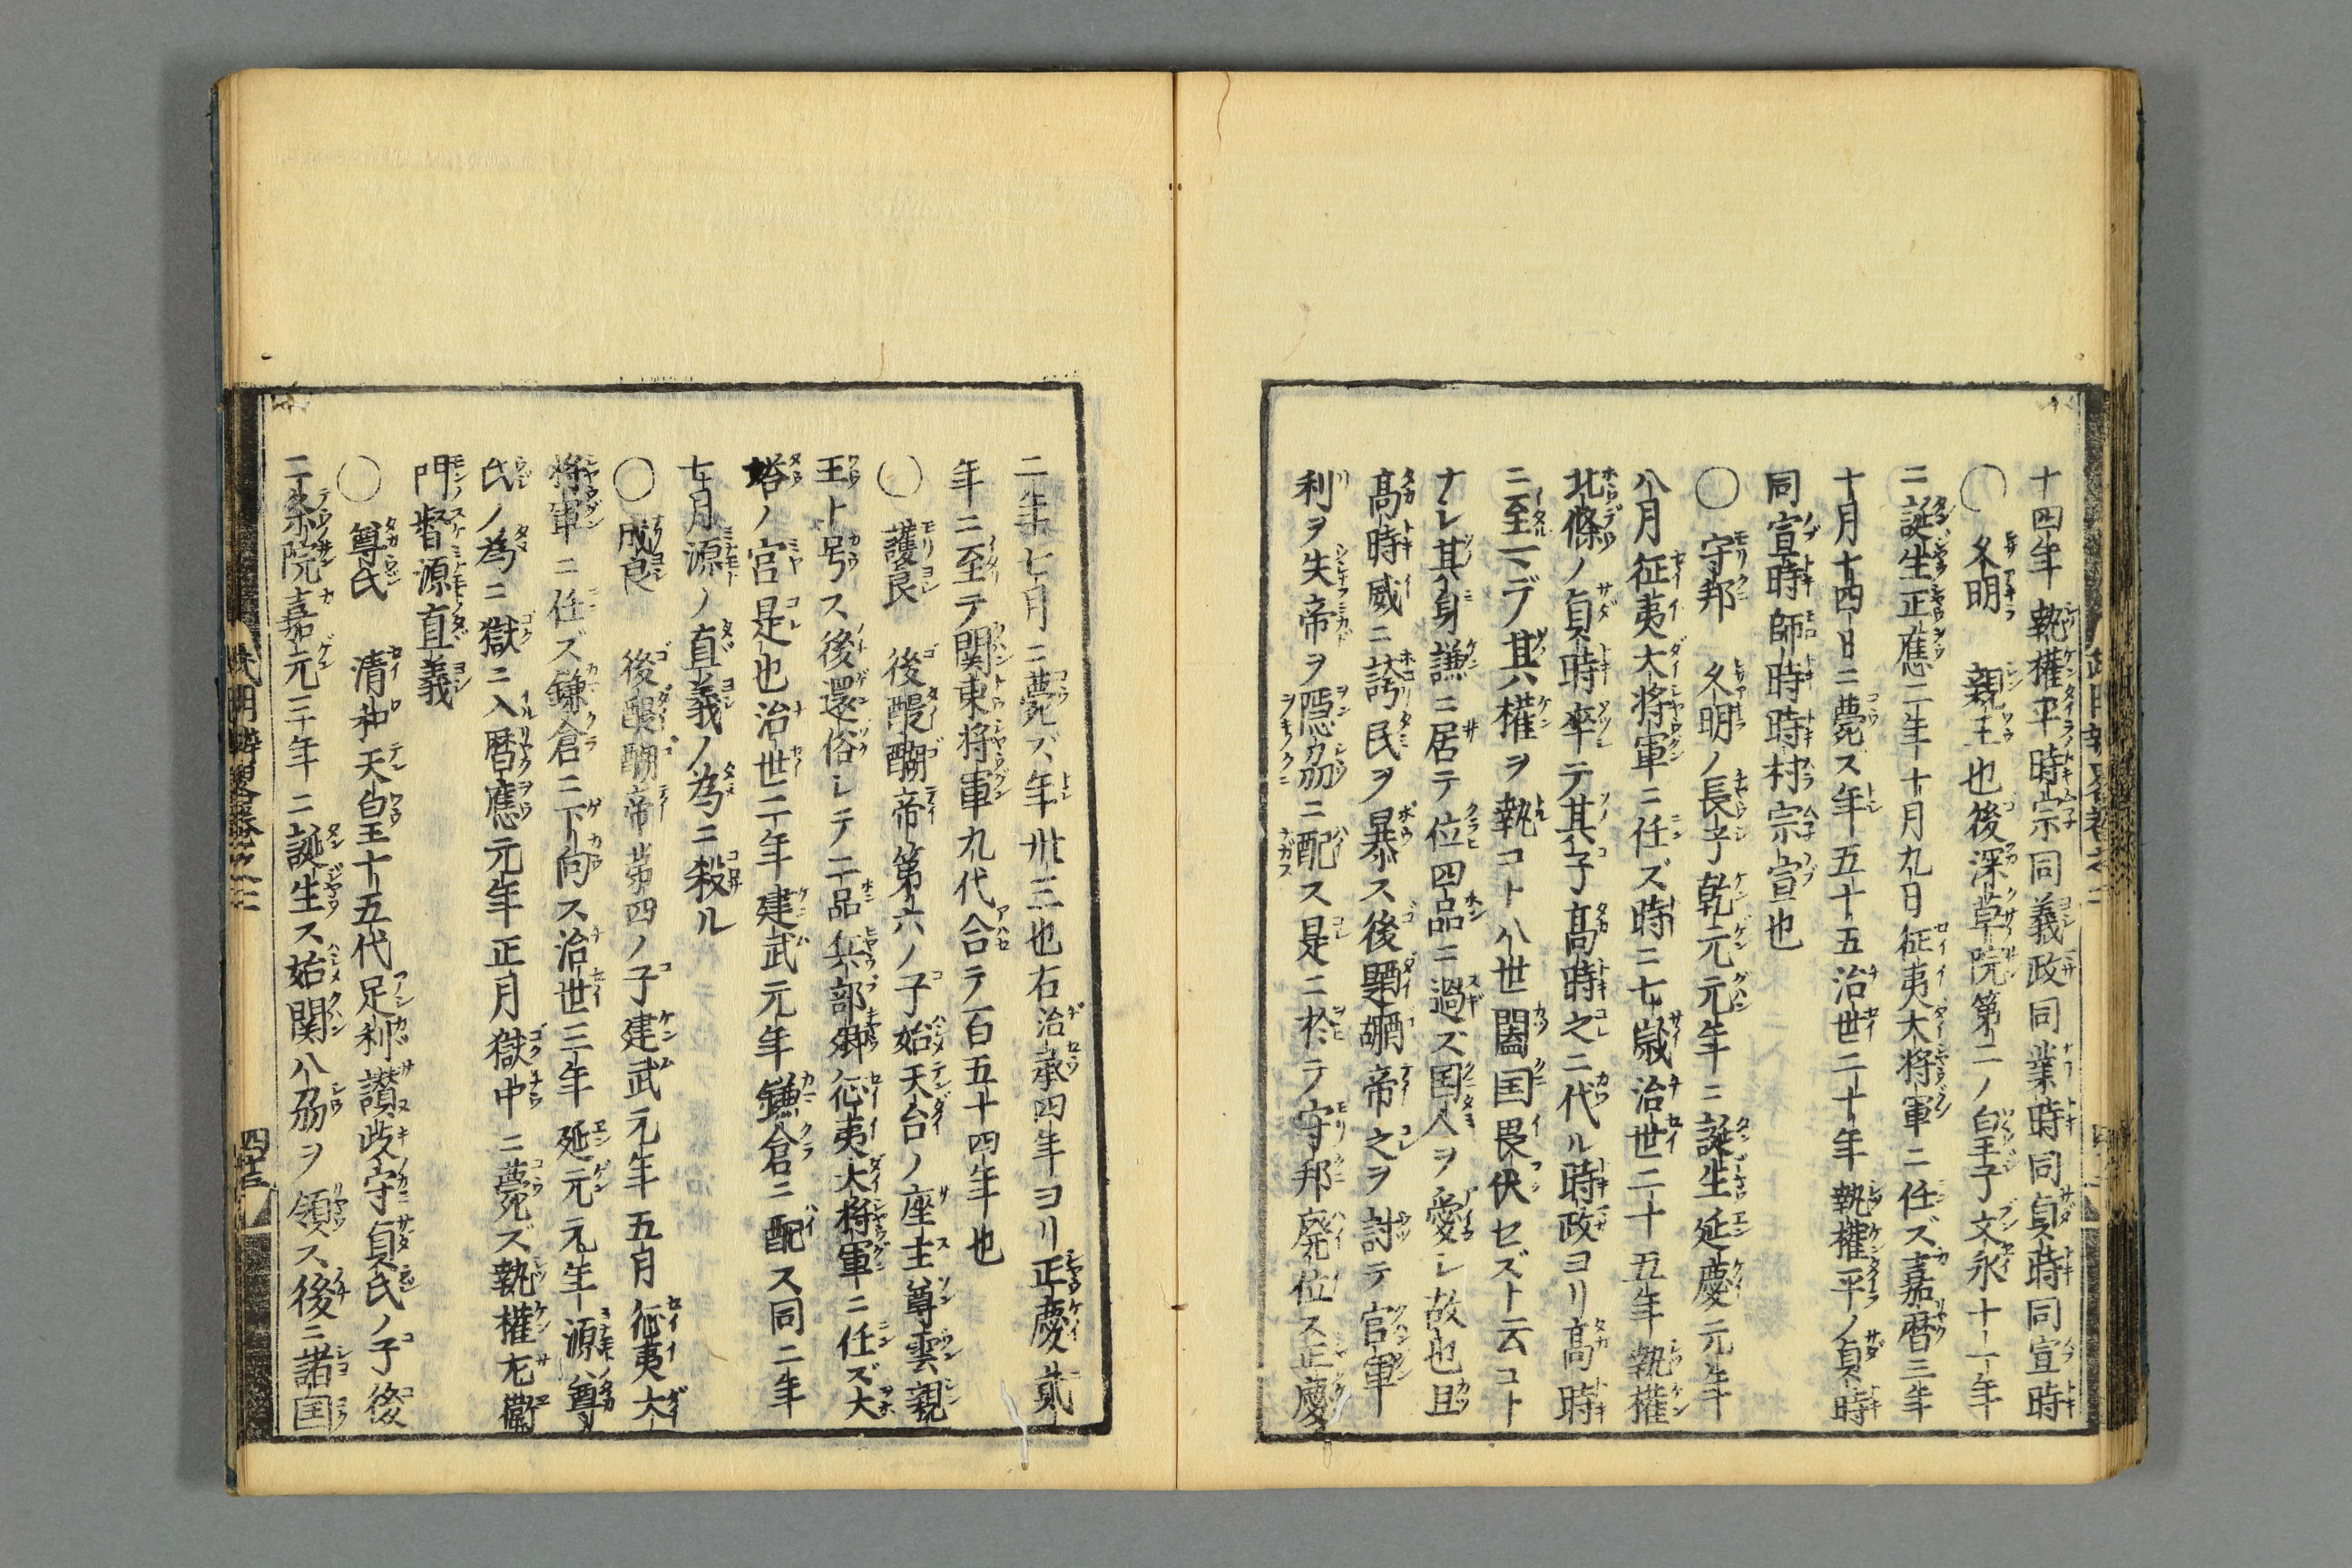 十四年執權平時宗同義政同業時同貞時同宣時
〇久明　親王也後深草院第二ノ皇子文永十一年
ニ誕生正應二年十月九日征夷大将軍ニ任ズ嘉暦三年
十月十四日ニ薨ス年五十五治世二十年執權平ノ貞時
同宣時師時時村宗宣也
〇守邦　久明ノ長子乾元元年ニ誕生延慶元年
八月征夷大将軍ニ任ズ時ニ七歳治世二十五年執權
北條ノ貞時卒テ其子髙時之ニ代ル時政ヨリ髙時
ニ至マデ其權ヲ執コト八世闔国畏伏セズト云コト
ナレ其身謙ニ居テ位四品ニ過ズ国人ヲ愛レ故也且
髙時威ニ誇民ヲ暴ス後醍醐帝之ヲ討テ官軍
利ヲ失帝ヲ隠刕ニ配ス是ニ於テ守邦廃位ス正慶
二年七月ニ薨ズ年卅三也右治承四年ヨリ正慶貳
年ニ至テ関東将軍九代合テ一百五十四年也
〇護良　後醍醐帝第六ノ子始天台ノ座主尊雲親
王ト号ス後還俗レテ二品兵部卿征夷大将軍ニ任ズ大
塔ノ宮是也治世二年建武元年鎌倉ニ配ス同二年
七月源ノ直義ノ為ニ殺ル
〇成良　後醍醐帝第四ノ子建武元年五月征夷大
将軍ニ任ズ鎌倉ニ下向ス治世三年延元元年源尊
氏ノ為ニ獄ニ入暦應元年正月獄中ニ薨ズ執權左衛
門督源直義
〇尊氏　清和天皇十五代足利讃岐守貞氏ノ子後
二条院嘉元三年ニ誕生ス始関八刕ヲ領ス後ニ諸国
武用辨畧巻之二
四十三